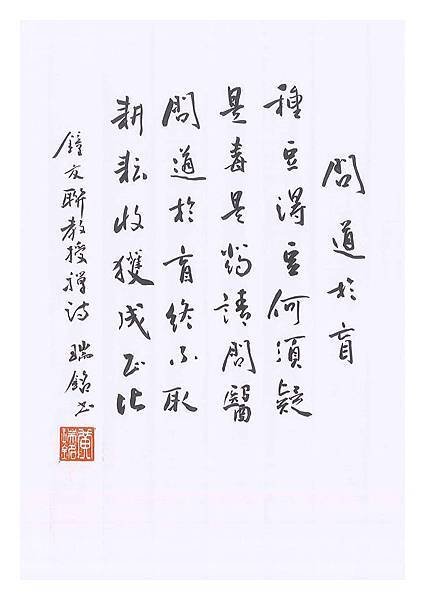 問道於盲
種豆得豆何須疑
是毒是葯請問醫
問道於盲終不取
耕耘收獲成正比
鐘友聯教授禪詩 瑞銘书
黃瑞銘